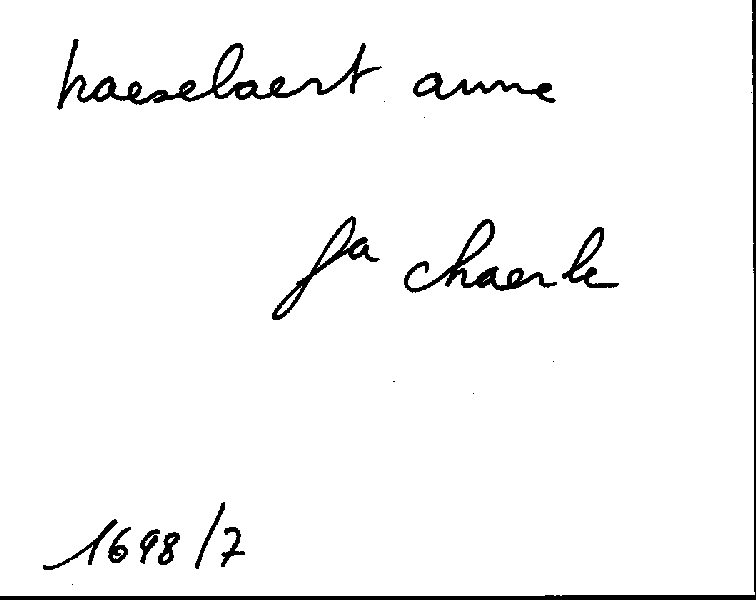 haeselaert anne
fa chaerle
1698/7